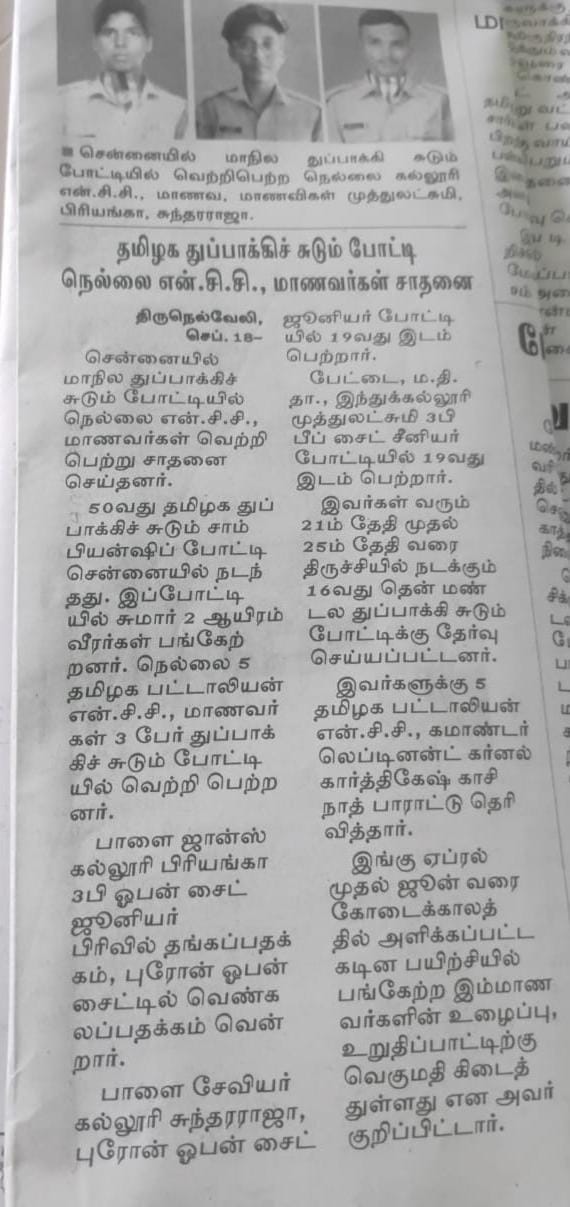 ■ சென்னையில் மாநில துப்பாக்கி சுடும்
போட்டியில் வெற்றிபெற்ற நெல்லை கல்லூரி
என்.சி.சி., மாணவ, மாணவிகள் முத்துலட்சுமி,
பிரியங்கா, சுந்தரராஜா.
தமிழக துப்பாக்கிச் சுடும் போட்டி
நெல்லை என்.சி.சி., மாணவர்கள் சாதனை
திருநெல்வேலி,
செப். 18–
சென்னையில்
மாநில துப்பாக்கிச்
சுடும் போட்டியில்
நெல்லை என்.சி.சி.,
மாணவர்கள் வெற்றி
பெற்று சாதனை
செய்தனர்.
50வது தமிழக துப்
பாக்கிச் சுடும் சாம்
பியன்ஷிப் போட்டி
சென்னையில் நடந்
தது. இப்போட்டி
யில் சுமார் 2 ஆயிரம்
வீரர்கள் பங்கேற்
றனர். நெல்லை 5
தமிழக பட்டாலியன்
என்.சி.சி., மாணவர்
கள் 3 பேர் துப்பாக்
கிச் சுடும் போட்டி
யில் வெற்றி பெற்ற
னர்.
பாளை ஜான்ஸ்
கல்லூரி பிரியங்கா
3பி ஓபன் சைட்
ஜூனியர்
பிரிவில் தங்கப்பதக்
கம், புரோன் ஓபன்
சைட்டில் வெண்க
லப்பதக்கம் வென்
றார்.
பாளை சேவியர்
கல்லூரி சுந்தரராஜா,
புரோன் ஓபன் சைட்
ஜூனியர் போட்டி
யில் 19வது இடம்
பெற்றார்.
பேட்டை, ம.தி.
தா., இந்துக்கல்லூரி
முத்துலட்சுமி 3பி
பீப் சைட் சீனியர்
போட்டியில் 19வது
இடம் பெற்றார்.
இவர்கள் வரும்
21ம் தேதி முதல்
25ம் தேதி வரை
திருச்சியில் நடக்கும்
16வது தென் மண்
டல துப்பாக்கி சுடும்
போட்டிக்கு தேர்வு
செய்யப்பட்டனர்.
இவர்களுக்கு 5
தமிழக பட்டாலியன்
என்.சி.சி., கமாண்டர்
லெப்டினன்ட் கர்னல்
கார்த்திகேஷ் காசி
நாத் பாராட்டு தெரி
வித்தார்.
இங்கு ஏப்ரல்
முதல் ஜூன் வரை
கோடைக்காலத்
தில் அளிக்கப்பட்ட
கடின பயிற்சியில்
பங்கேற்ற இம்மாண
வர்களின் உழைப்பு,
உறுதிப்பாட்டிற்கு
வெகுமதி கிடைத்
துள்ளது என அவர்
குறிப்பிட்டார்.